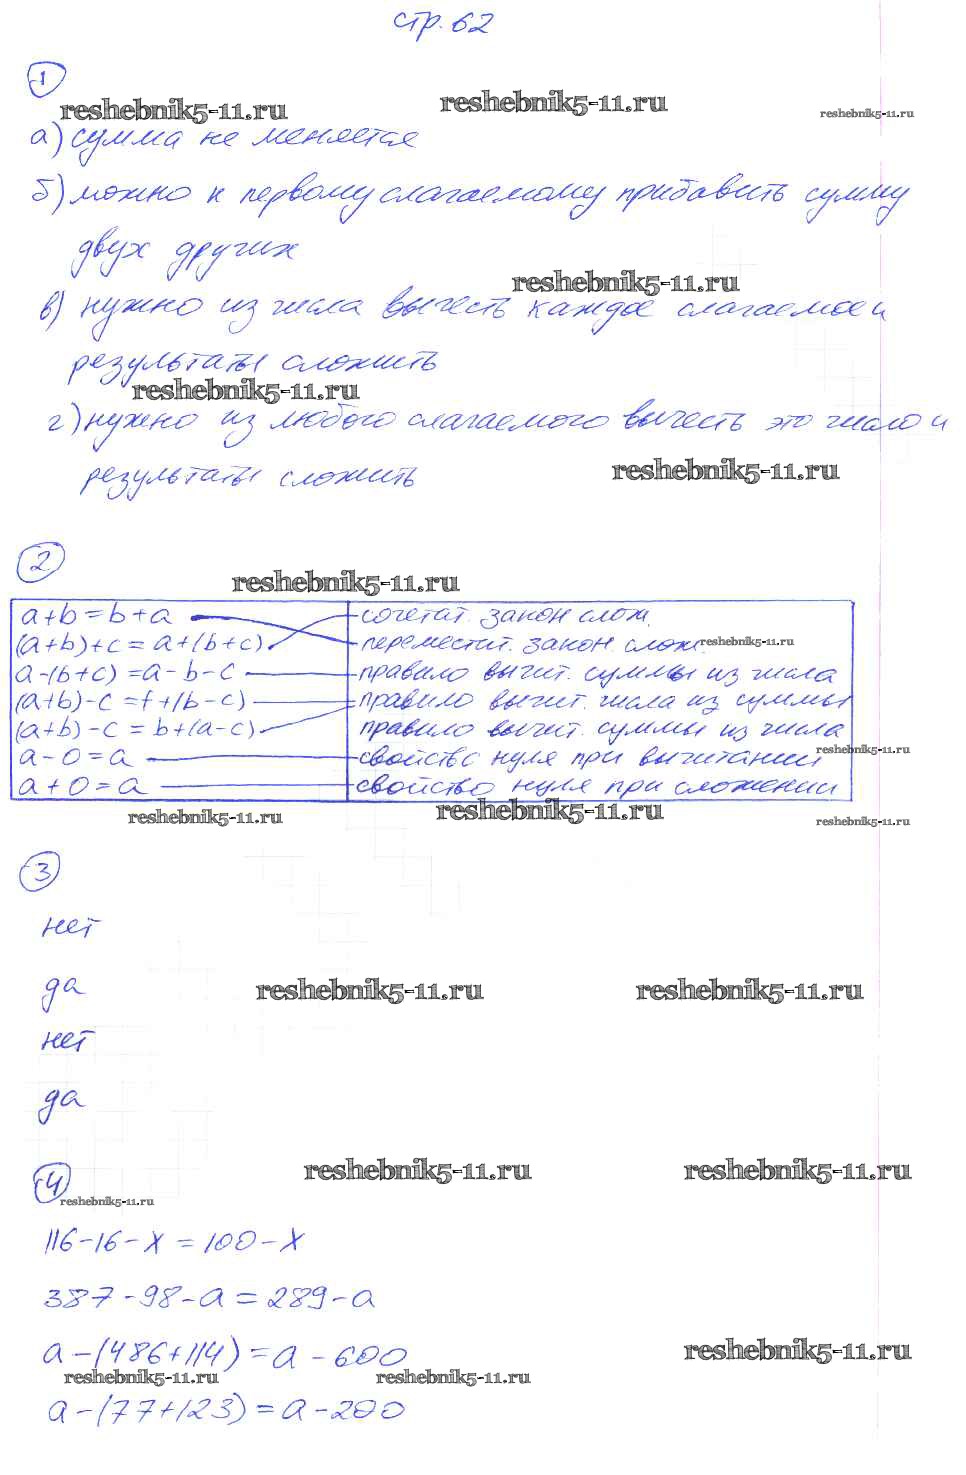 стр. 62
1
reshebnik5-11.ru reshebnik5-11.ru reshebnik5-11.ru
а) сумма не меняется
б) можно к первому слагаемому прибавить сумму
двух других
reshebnik5-11.ru
в) нужно из числа вычесть каждое слагаемое и
результаты сложить
reshebnik5-11.ru
г) нужно из любого слагаемого вычесть это число и
результаты сложить
reshebnik5-11.ru
2
reshebnik5-11.ru
a+b=b+a сочетат. закон слож.
(a+b)+c=a+(b+c) переместит. закон слож. reshebnik5-11.ru
a-(b+c)=a-b-c правило вычит. суммы из числа
(a+b)-c=f+(b-c) правило вычит. числа из суммы
(a+b)-c=b+(a-c) правило вычит. суммы из числа
reshebnik5-11.ru
a-0=a свойство нуля при вычитании
a+0=a свойство нуля при сложении
reshebnik5-11.ru reshebnik5-11.ru reshebnik5-11.ru
3
нет
да
reshebnik5-11.ru reshebnik5-11.ru
нет
да
reshebnik5-11.ru reshebnik5-11.ru
4
reshebnik5-11.ru
116-16-x=100-x
387-98-a=289-a
a-(486+114)=a-600
reshebnik5-11.ru
reshebnik5-11.ru reshebnik5-11.ru
a-(77+123)=a-200